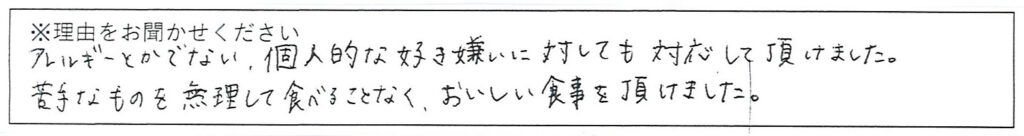 ※理由をお聞かせください
アレルギーとかでない、個人的な好き嫌いに対しても対応して頂けました。
苦手なものを無理して食べることなく、おいしい食事を頂けました。